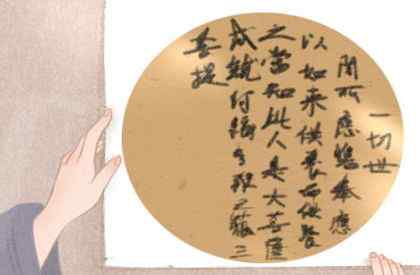 一切世
間所應瞻奉應
以如來供養而供養
之當知此人是大菩薩
成就阿耨多羅三藐三
菩提